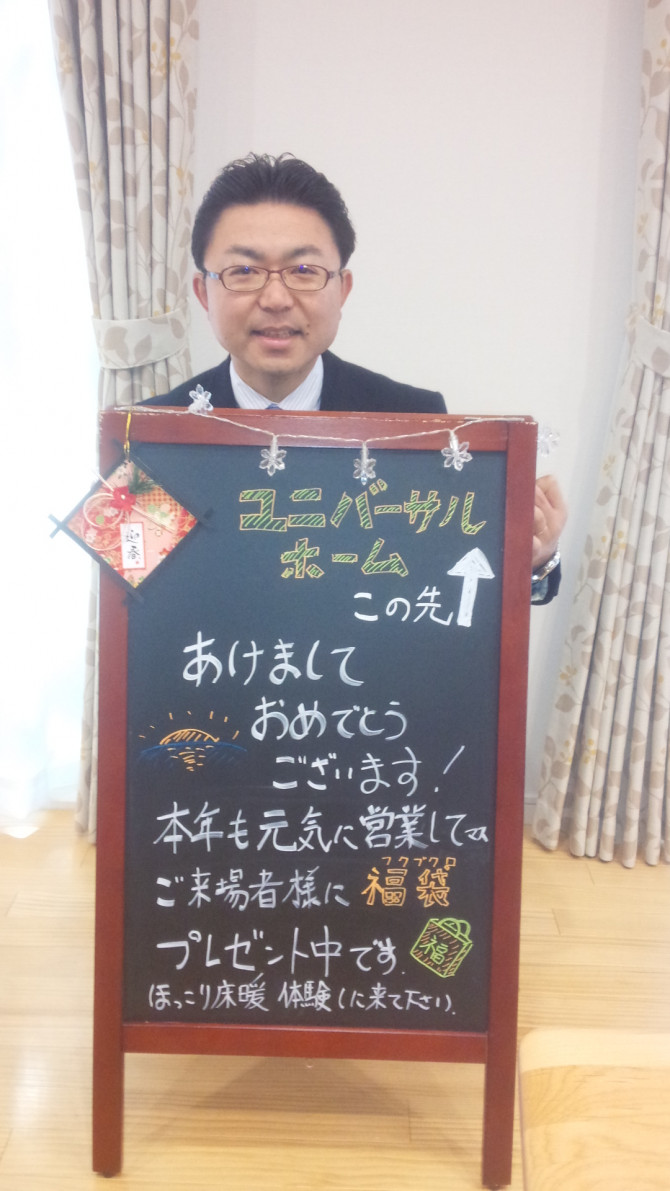 迎春
ユニバーサル
ホーム
この先
あけまして
おめでとう
ございます!
本年も元気に営業してます
フクブクロ
ご来場者様に 福袋
プレゼント中です。
福
ほっこり床暖 体験しに来て下さい。